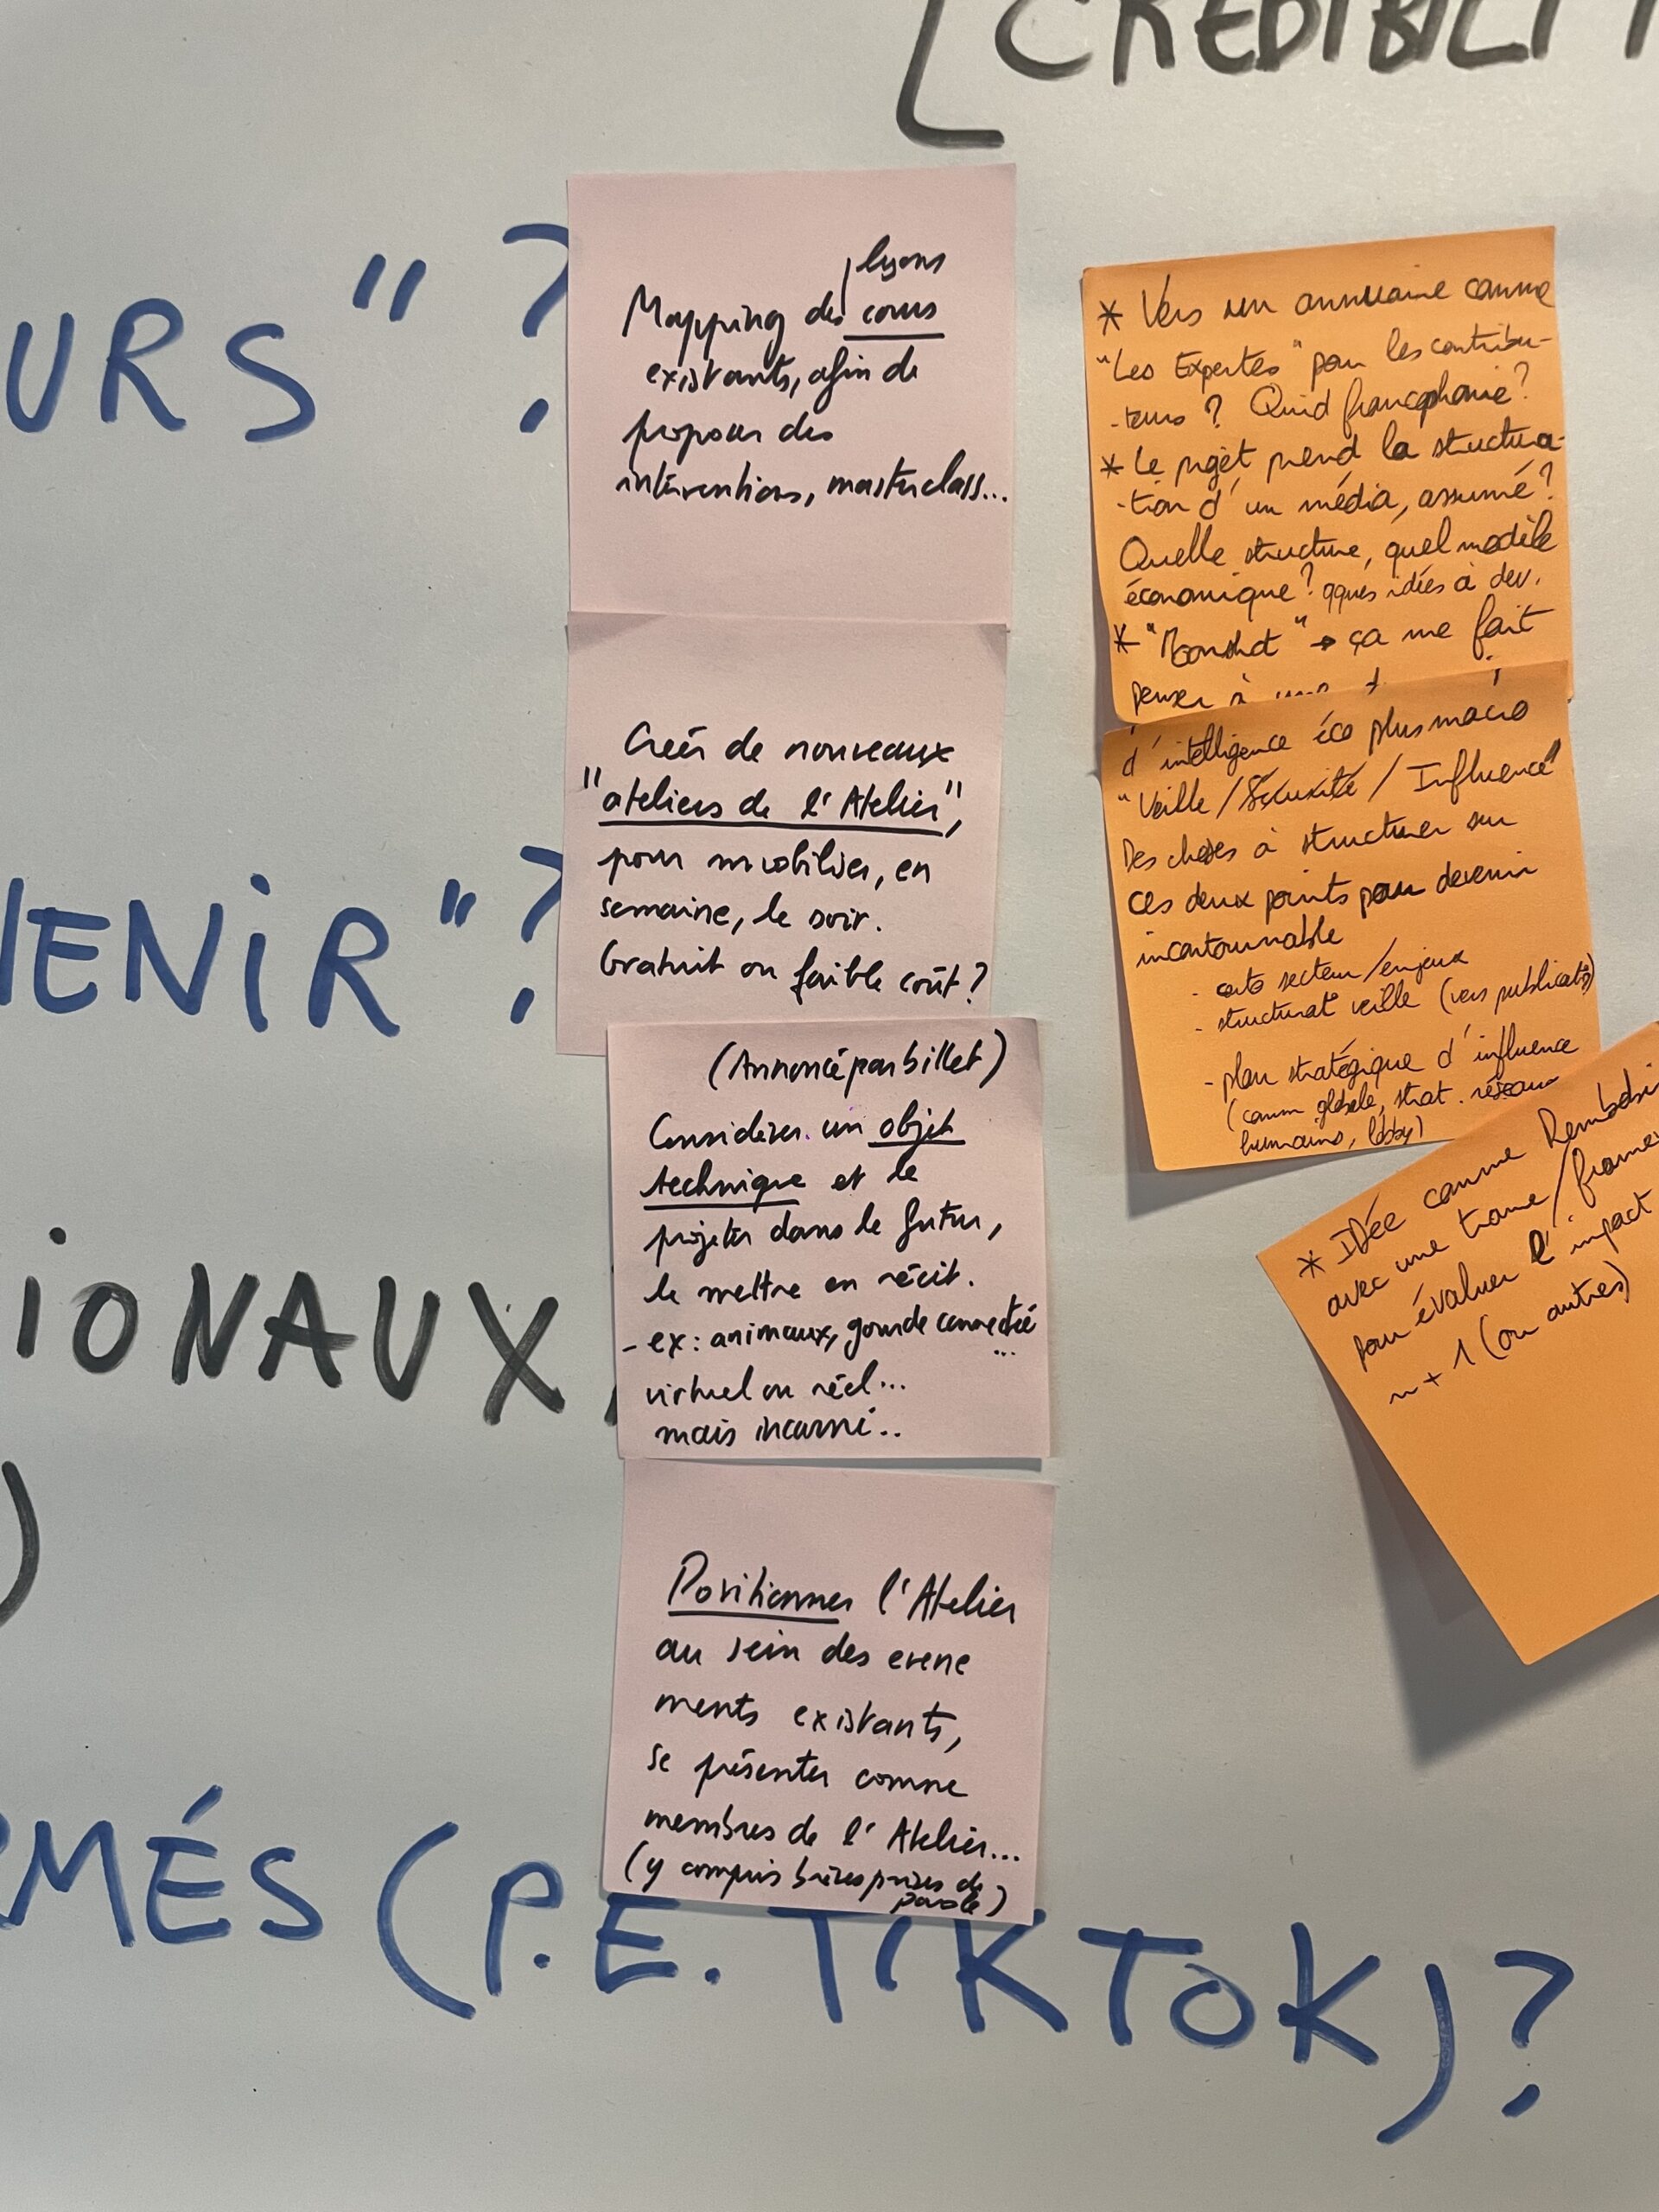 [CREDIBILI
URS" ?
ENIR" ?
IONAUX,
)
RMÉS (P.E. TIKTOK) ?
lycées
Mapping des cours
existants, afin de
proposer des
interventions, masterclass...
Créer de nouveaux
"ateliers de l'Atelier",
pour mobiliser, en
semaine, le soir.
Gratuit ou faible coût ?
(Annoncé par billet)
Considérer un objet
technique et le
projeter dans le futur,
le mettre en récit.
- ex : animaux, gourde connectée
...
virtuel ou réel...
mais incarné..
Positionner l'Atelier
au sein des evene
ments existants,
se présenter comme
membres de l'Atelier...
(y compris brèves prises de
parole)
* Vers un annuaire comme
"Les Expertes" pour les contribu-
-teurs ? Quid francophonie ?
* Le projet prend la structura-
-tion d'un média, assumé ?
Quelle structure, quel modèle
économique ? qques idées à dev.
* "Moonshot" → ça me fait
penser à
d'intelligence éco plus macro
"Veille / Sécurité / Influence"
Des choses à structurer sur
ces deux points pour devenir
incontournable
- carto secteur/enjeux
- structurat° veille (vers publicat°)
- plan stratégique d'influence
(comm globale, strat. réseaux
humains, lobby)
* IDÉE comme
avec une trame/
pour évaluer l'impact
n + 1 (ou autres)